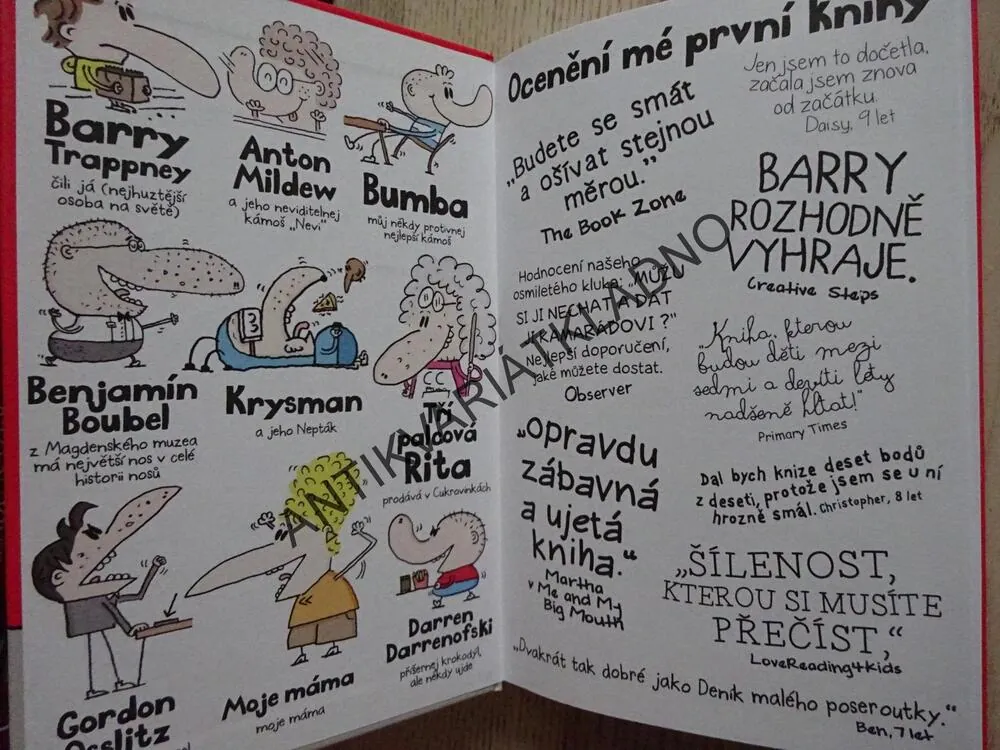 Barry
Trappney
čili já (nejhuztější
osoba na světě)
Anton
Mildew
a jeho neviditelnej
kámoš „Nevi"
Bumba
můj někdy protivnej
nejlepší kámoš
Benjamín
Boubel
z Magdenského muzea
má největší nos v celé
historii nosů
3
Krysman
a jeho Nepták
CC
Tří
palcová
Rita
prodává v Cukrovinkách
Gordon
Moje máma
moje máma
Darren
Darrenofski
příšernej krokodýl,
ale někdy ujde
Ocenění mé první knihy
„Budete se smát
a ošívat stejnou
měrou."
The Book Zone
Jen jsem to dočetla,
začala jsem znova
od začátku.
Daisy, 9 let
BARRY
ROZHODNĚ
VYHRAJE.
Creative Steps
Hodnocení našeho
osmiletého kluka: „MŮŽU
SI JI NECHAT A DAT
JI KAMARÁDOVI ?"
Nejlepší doporučení,
jaké můžete dostat.
Observer
„Kniha, kterou
budou děti mezi
sedmi a devíti léty
nadšeně hltat!"
Primary Times
„opravdu
zábavná
a ujetá
kniha."
Martha
v Me and My
Big Mouth
Dal bych knize deset bodů
z deseti, protože jsem se u ní
hrozně smál. Christopher, 8 let
„ŠÍLENOST,
KTEROU SI MUSÍTE
PŘEČÍST,"
LoveReading4kids
„Dvakrát tak dobré jako Deník malého poseroutky."
Ben, 7 let
ANTIKVARIÁT KLADNO